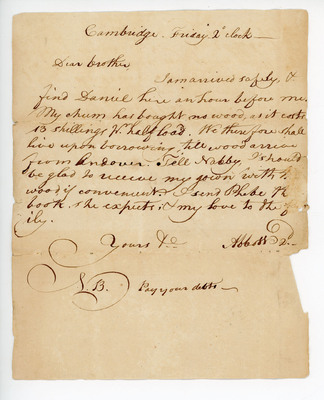 Cambridge. Friday 2 o'clock —
Dear brother
I am arrived safely, &
find Daniel here an hour before me.
My chum has bought no wood, as it costs
13 shillings pr. half load. We therefore shall
live upon borrowing, till wood arrive
from Andover. Tell Nabby, I should
be glad to receive my gown with the
wood if convenient. I send Phebe the
book she expects, & my love to the
ily.
Yours &c Abbot 2d.
N.B. Pay your debts —